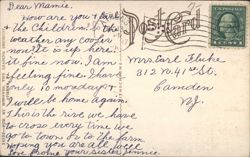 Dear Mamie.
How are you & Earl
& the Children? Is the
weather any cooler
now? It is up here
it fine now. I am
feeling fine. I have
only 10 more days &
I will be home again
This is the river we have
to cross every time we
go to town or to the farm
hoping you are all well
your sister
Post Card
Mrs. Earl Fluke
312 N 41st St.
Camden
N.J.